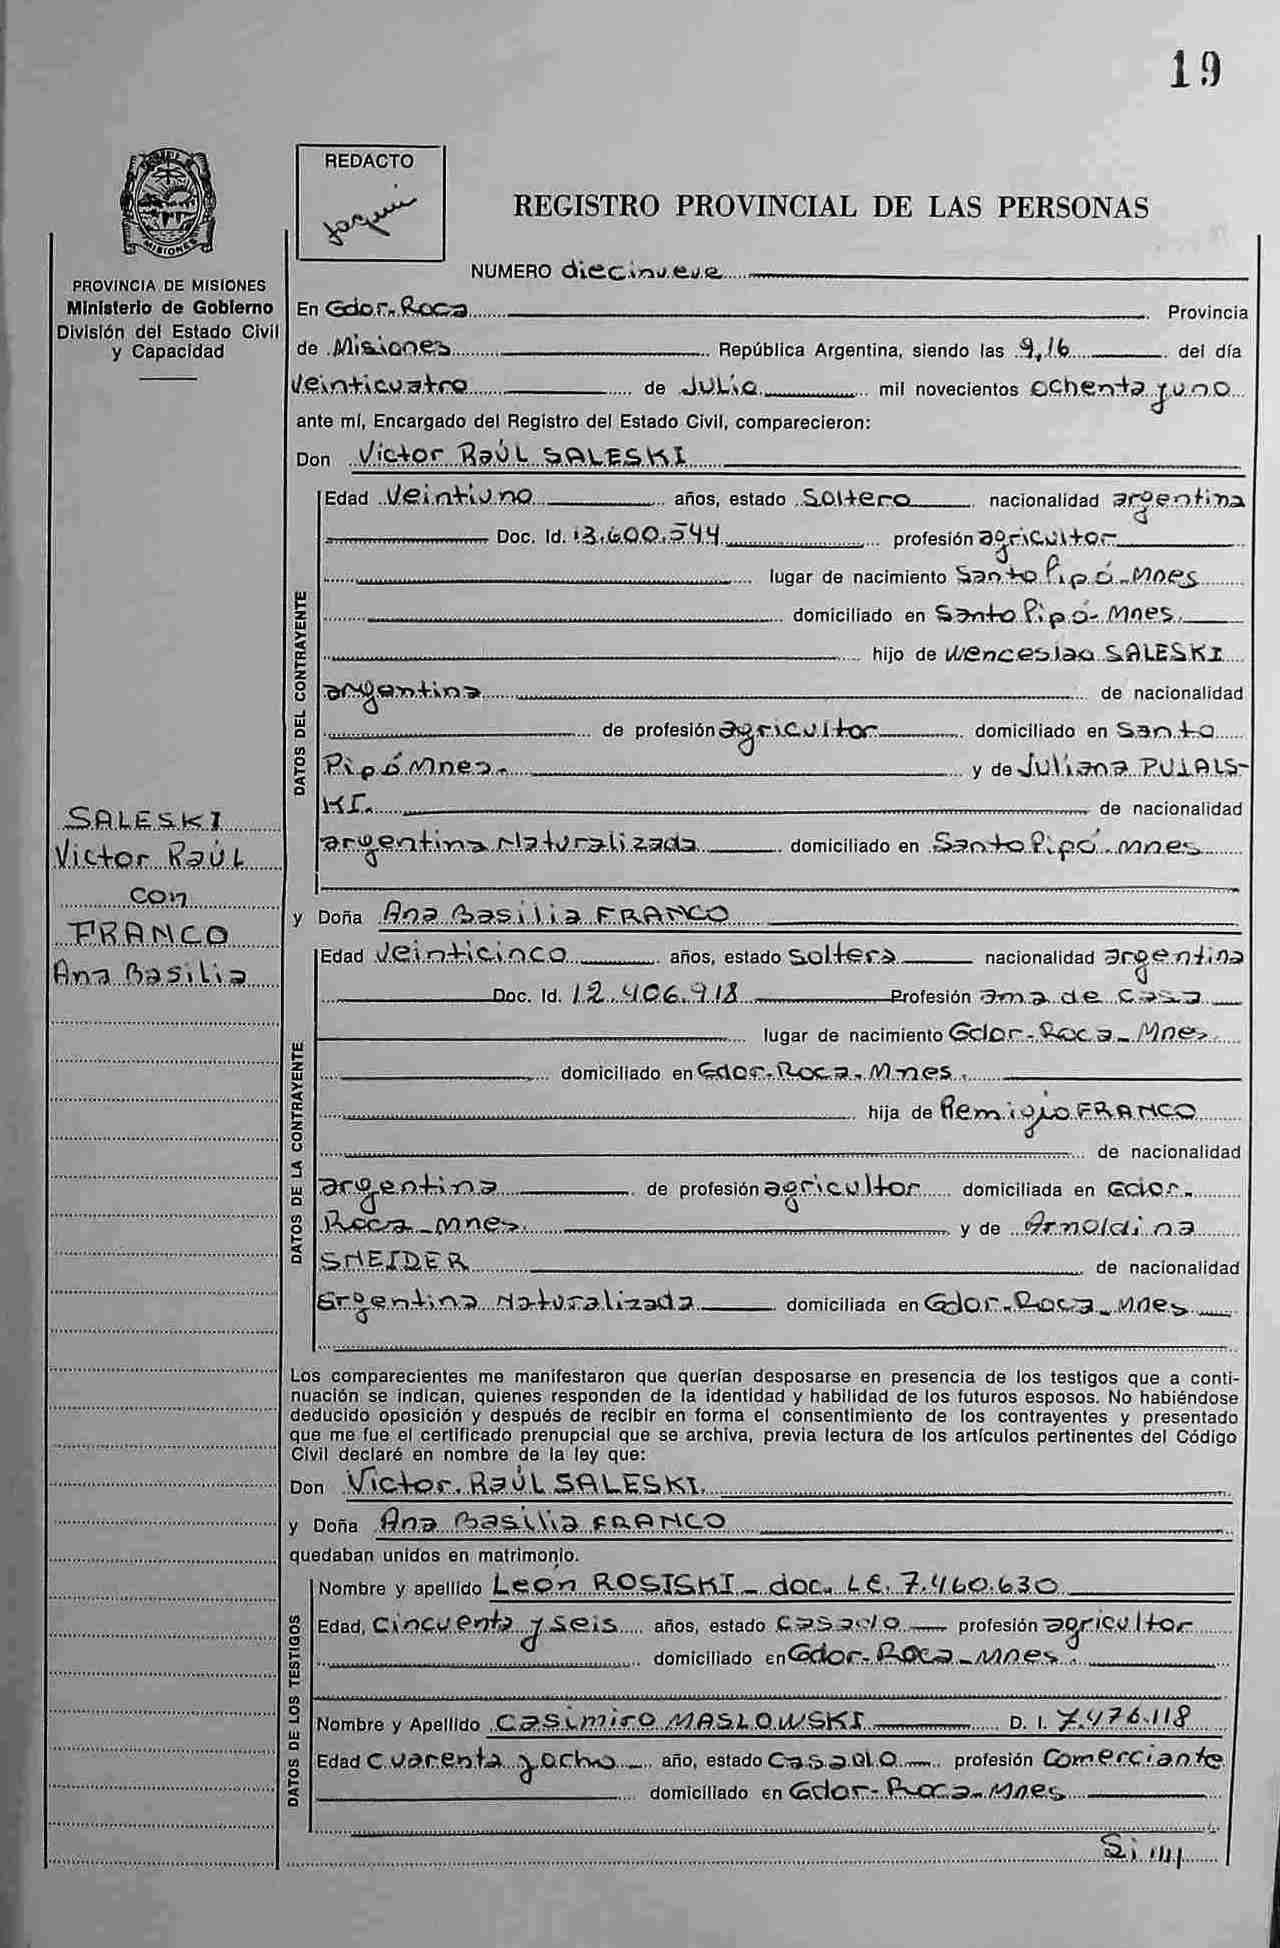 19
REDACTO
Jaquin
REGISTRO PROVINCIAL DE LAS PERSONAS
MISIONES
PROVINCIA DE MISIONES
Ministerio de Gobierno
División del Estado Civil
y Capacidad
SALESKI
Victor RaúL
con
FRANCO
Ana Basilia
NUMERO diecinueve
En Gdor. Roca Provincia
de Misiones República Argentina, siendo las 9,16 del día
veinticuatro de JULio mil novecientos ochenta y uno
ante mí, Encargado del Registro del Estado Civil, comparecieron:
Don Victor RaÚL SALESKI
DATOS DEL CONTRAYENTE
Edad Veintiuno años, estado Soltero nacionalidad argentina
Doc. Id. 13.600.544 profesión agricultor
lugar de nacimiento Santo Pipó-Mnes
domiciliado en Santo Pipó-Mnes.
hijo de Wenceslao SALESKI
argentina de nacionalidad
de profesión agricultor domiciliado en Santo
Pipó Mnes. y de Juliana PUJALS-
KI. de nacionalidad
argentina Naturalizada domiciliado en Santo Pipó. Mnes
y Doña Ana Basilia FRANCO
DATOS DE LA CONTRAYENTE
Edad veinticinco años, estado soltera nacionalidad argentina
Doc. Id. 12.406.918 Profesión ama de casa
lugar de nacimiento Gdor-Roca-Mnes.
domiciliado en Gdor-Roca-Mnes.
hija de Remigio FRANCO
de nacionalidad
argentina de profesión agricultor domiciliada en Gdor.
Roca-Mnes. y de Arnoldina
SNEIDER de nacionalidad
Argentina Naturalizada domiciliada en Gdor-Roca-Mnes
Los comparecientes me manifestaron que querían desposarse en presencia de los testigos que a conti-
nuación se indican, quienes responden de la identidad y habilidad de los futuros esposos. No habiéndose
deducido oposición y después de recibir en forma el consentimiento de los contrayentes y presentado
que me fue el certificado prenupcial que se archiva, previa lectura de los artículos pertinentes del Código
Civil declaré en nombre de la ley que:
Don Victor. RaÚL SALESKI.
y Doña Ana Basilia FRANCO
quedaban unidos en matrimonio.
DATOS DE LOS TESTIGOS
Nombre y apellido León ROSISKI - doc. L.E. 7.460.630
Edad, cincuenta y seis años, estado casado profesión agricultor
domiciliado en Gdor-Roca-Mnes.
Nombre y Apellido Casimiro MASLOWSKI D. I. 7.476.118
Edad Cuarenta y ocho año, estado Casado profesión Comerciante
domiciliado en Gdor-Roca-Mnes